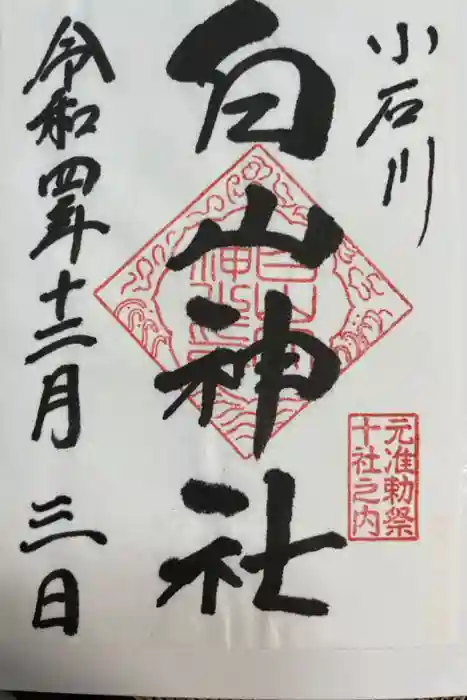 小石川
白山神社
元准勅祭
十社之内
令和四年十二月三日